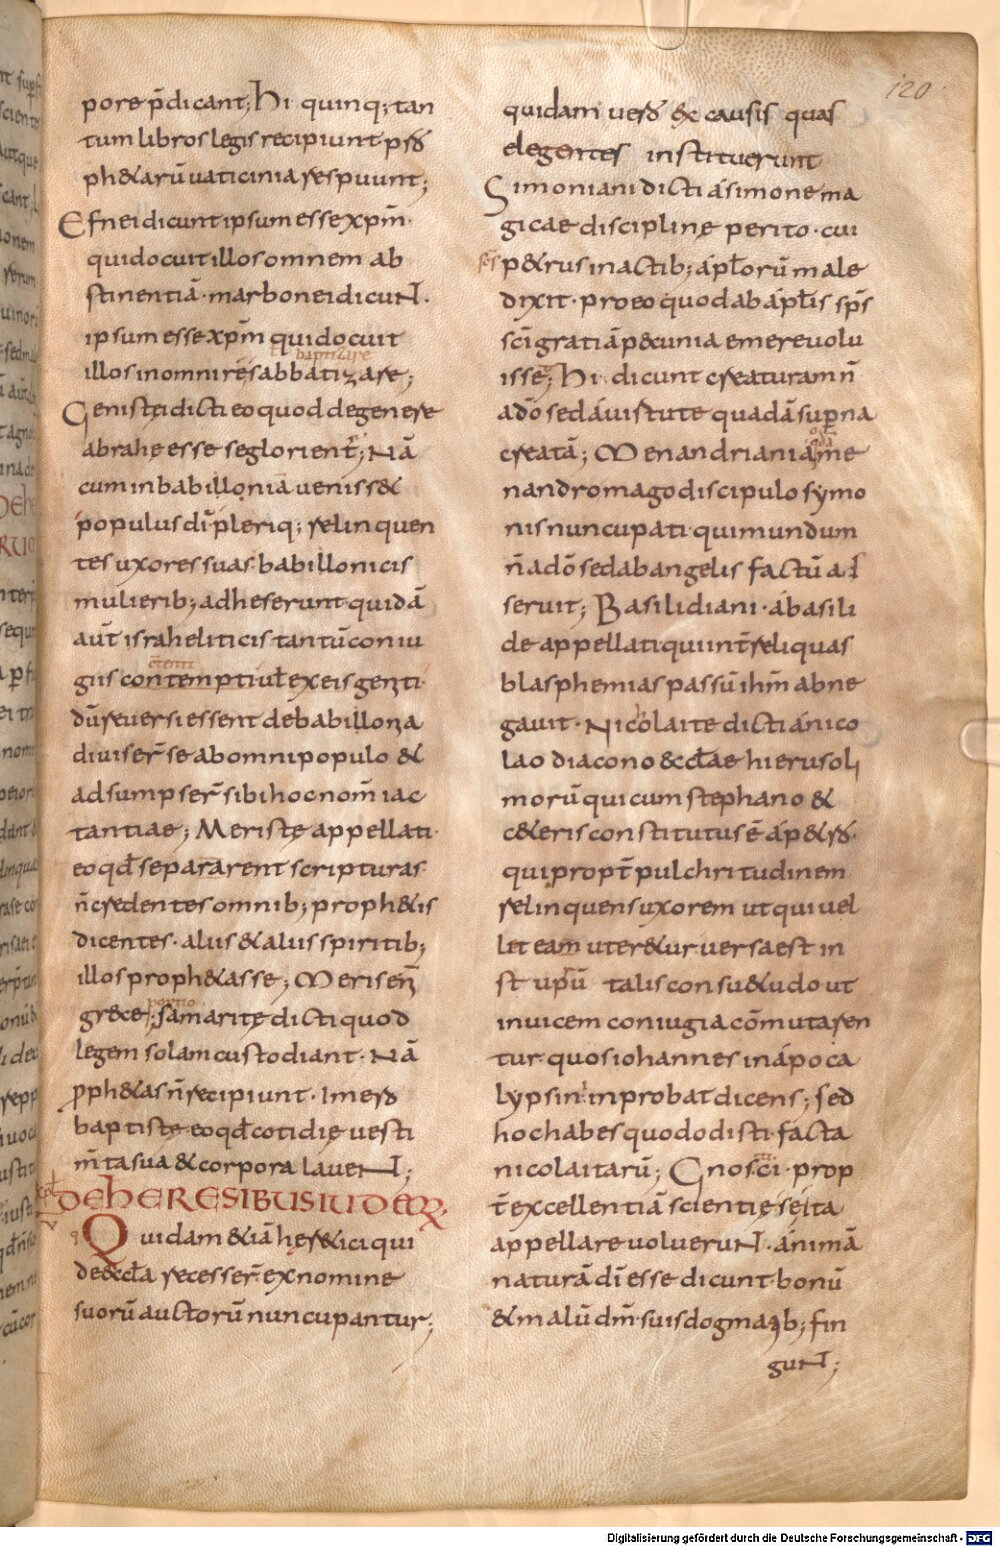 120
pore p̄dicant; hi quinq; tan
tum libros legis recipiunt p̱ro
ph&arū uaticinia respuunt;
Esnei dicunt ipsum esse xpm̄
qui docuit illos omnem ab
stinentiā. marbonei dicuNT.
ipsum esse xpm̄ qui docuit
baptizare
illos in omni re sabbatizare;
Genistei dicti eo quod de genere
abrahę esse se glorient̄; Nā
cum in babilloniā ueniss&
populus dī pleriq; relinquen
tes uxores suas babillonicis
mulierib; adheserunt quidā
aut̄ israheliticis tantū coniu
giis contempti ut ex eis geniti
dū reuersi essent de babillona
diuiser̄ se ab omni populo &
adsumpser̄ sibi hoc nom̄ iac
tantiae; Meristę appellati
eo qđ separarent scripturas
n̄ credentes omnib; proph&is
dicentes. aliis & aliis spiritib;
illos proph&asse; Meris en̄
portio
grece; samaritę dicti quod
legem solam custodiant. Nā
p̱ph&as n̄ recipiunt. Imero
baptistę eo qđ cotidię uesti
m̄ta sua & corpora laueNT;
DE HERESIBUS IUDEORꝜ.
Quidam &iā hęr&ici qui
de eccła recesser̄ ex nomine
suorū auctorū nuncupantur;
quidam uero & causis quas
elegentes instituerunt
Simoniani dicti á simone ma
gicae disciplinę perito. cui
p&rus in actib; áptorū male
dixit. pro eo quod ab áptis sp̄s
sc̄i gratiā p&cunia emere uolu
isse; Hi dicunt creaturam n̄
a dō sed á uirtute quadā sup̱na
creatā; Menandriani á me
nandro mago discipulo symo
nis nuncupati qui mundum
n̄ a dō sed ab angelis factū as
seruit; Basilidiani. á basili
de appellati qui int̄ reliquas
blasphemias passū ihm̄ abne
gauit. Nicolaite dicti á nico
lao diacono eccłae hierusoli
morū qui cum stephano &
c&eris constitutus ē á p&ro.
qui propt̄ pulchritudinem
relinquens uxorem ut qui uel
let eam uter&ur uersa est in
st upū talis consu&udo ut
inuicem coniugia cōmutaren
tur. quos iohannes in ápoca
lypsin inprobat dicens; sed
hoc habes quod odisti facta
nicolaitarū; Gnosci. prop
t̄ excellentiā scientię se ita
appellare uolueruNT. ánimā
naturā dī esse dicunt bonū
& malū dm̄ suis dogmatib; fin
guNT;
Digitalisierung gefördert durch die Deutsche Forschungsgemeinschaft - DFG